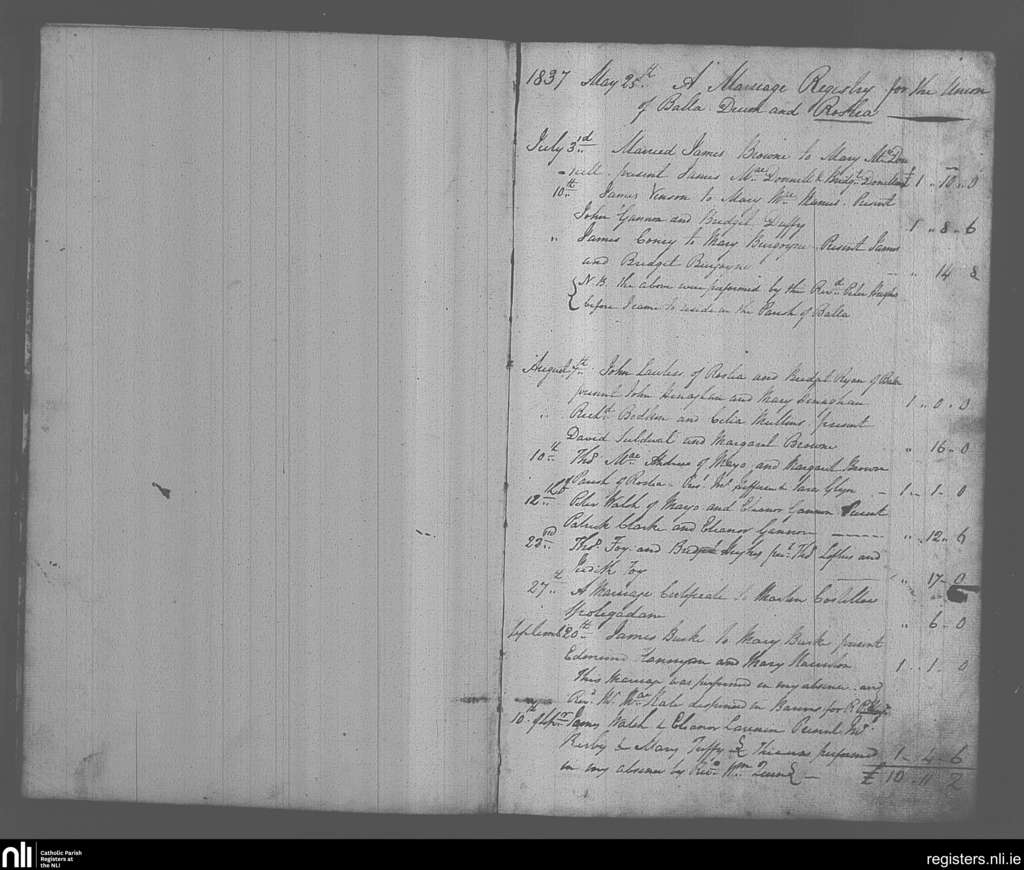 1837 May 25th A Marriage Registry for the Union
of Balla Drum and Roslea
July 3rd Married James Browne to Mary McDon
-nell present James McDonnell & Bridgt Donnellan £ 1 .. 10 .. 0
10th James Vinson to Mary McManus. Present
John Gannon and Bridget Duffy 1 .. 8 .. 6
" James Coney to Mary Burgoyne Present James
and Bridget Burgoyne " 14 8
N.B. the above were performed by the Revd Peter Hughes
before I came to reside in the Parish of Balla
August 7th John Lawless of Roslea and Bridget Ryan of Balla
present John Henaghan and Mary Henaghan 1 .. 0 .. 0
" Richd Bodkin and Celia Mullens present
David and Margaret Browne " 16 .. 0
10th Thos MacAndrew of Mayo and Margaret Brown
Parish of Roslea Prest Glynn 1 .. 1 .. 0
12th Peter Walsh of Mayo and Eleanor Gannon Present
Patrick Clarke and Eleanor Gannon " 12 .. 6
23rd Thos Foy and Bridget Hughes prest Thos Loftus and
Judith Foy " 17 .. 0
27th A Marriage Certificate to Martin Costelloe
" 6 .. 0
September 20th James Burke to Mary Burke present
Edmund and Mary 1 .. 1 .. 0
This Marriage was performed in my absence and
Revd W. McHale dispensed in Banns for
10th of Sepr James Walsh & Eleanor Present
Kirby & Mary Tuffy This was performed 1 .. 4 .. 6
in my absence by Revd Wm £ 10 .. 11 2
nli
Catholic Parish
Registers at
the NLI
registers.nli.ie